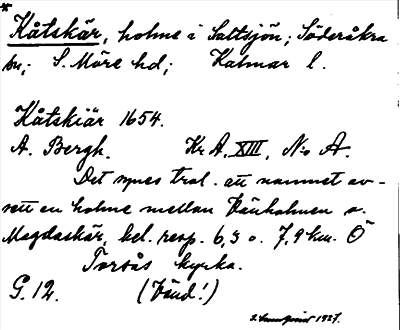 *
Kåtskär, holme i Saltsjön; Söderåkra
sn; S. Möre hd; Kalmar l.
Kåtskiär 1654.
A. Bergh. Kr. A. XIII, No A.
Det synes trol. att namnet av-
sett en holme mellan holmen o.
Magdaskär, bel. resp. 6,5 o. 7,9 km. Ö
Torsås kyrka.
G. 12. (Vänd!)
1927.